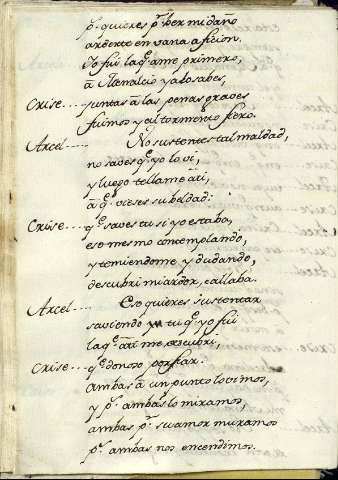 pr. quieres pr. ber mi daño
arderte en vana aficion.
Yo fui la q. ame primero,
a Menalcio ya lo sabes,
Crise.... juntas a las penas graves
fuimos y al tormento fiero.
Arcel.... No sustentes tal maldad,
no saves q. yo lo vi,
y luego te llame a ti,
a q. vieses su beldad:
Crise.... q. saves tu si yo estaba,
eso mesmo contemplando,
y temiendome y dudando,
descubri mi ardor, callaba.
Arcel.... Eso quieres sustentar
saviendo tu q. yo fui
la q. a ti me descubri,
Crise.... q. donoso porfiar.
ambas a un punto lo vimos,
y pr. ambas lo miramos,
ambas pr. su amor muramos
pr. ambas nos encendimos.